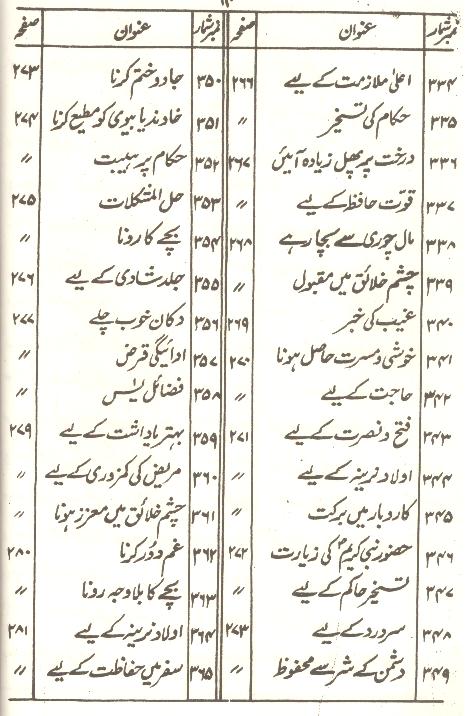 نمبر شمار عنوان صفحہ
۳۳۴ اعلیٰ ملازمت کے لیے ۲۶۶
۳۳۵ حکام کی تسخیر 〃
۳۳۶ درخت پر پھل زیادہ آئیں ۲۶۷
۳۳۷ قوّت حافظہ کے لیے 〃
۳۳۸ مال چوری سے بچا رہے ۲۶۸
۳۳۹ چشم خلائق میں مقبول 〃
۳۴۰ غیب کی خبر ۲۶۹
۳۴۱ خوشی و مسرت حاصل ہونا ۲۷۰
۳۴۲ حاجت کے لیے 〃
۳۴۳ فتح و نصرت کے لیے ۲۷۱
۳۴۴ اولاد نرینہ کے لیے 〃
۳۴۵ کاروبار میں برکت 〃
۳۴۶ حضور نبی کریمؐ کی زیارت ۲۷۲
۳۴۷ تسخیر حاکم کے لیے 〃
۳۴۸ سر درد کے لیے ۲۷۳
۳۴۹ دشمن کے شر سے محفوظ 〃
نمبر شمار عنوان صفحہ
۳۵۰ جادو ختم کرنا ۲۷۳
۳۵۱ خاوند یا بیوی کو مطیع کرنا ۲۷۴
۳۵۲ حکام پر ہیبت 〃
۳۵۳ حل المشکلات ۲۷۵
۳۵۴ بچے کا رونا 〃
۳۵۵ جلد شادی کے لیے ۲۷۶
۳۵۶ دکان خوب چلے ۲۷۷
۳۵۷ ادائیگی قرض 〃
۳۵۸ فضائل یٰس 〃
۳۵۹ بہتر یادداشت کے لیے ۲۷۹
۳۶۰ مریض کی کمزوری کے لیے 〃
۳۶۱ چشم خلائق میں معزز ہونا 〃
۳۶۲ غم دُور کرنا ۲۸۰
۳۶۳ بچے کا بلا وجہ رونا 〃
۳۶۴ اولاد نرینہ کے لیے ۲۸۱
۳۶۵ سفر میں حفاظت کے لیے 〃